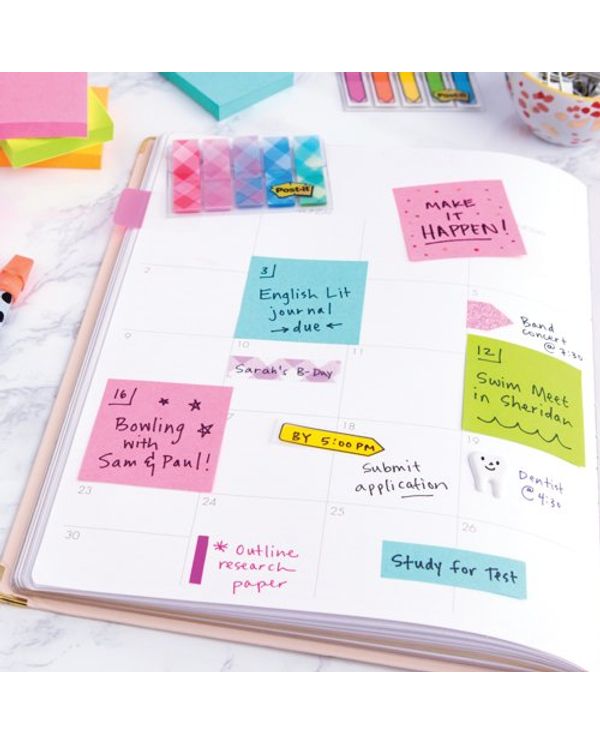 Post-it
Post-it
MAKE
IT
HAPPEN!
2
3
English Lit
journal
→ due ←
5
Band
concert
@ 7:30
9
10
11
12
Sarah's B-Day
Swim Meet
in Sheridan
16
Bowling
with
Sam & Paul!
18
BY 5:00 PM
Submit
application
19
Dentist
@ 4:30
23
24
25
26
30
* Outline
research
paper
Study for Test